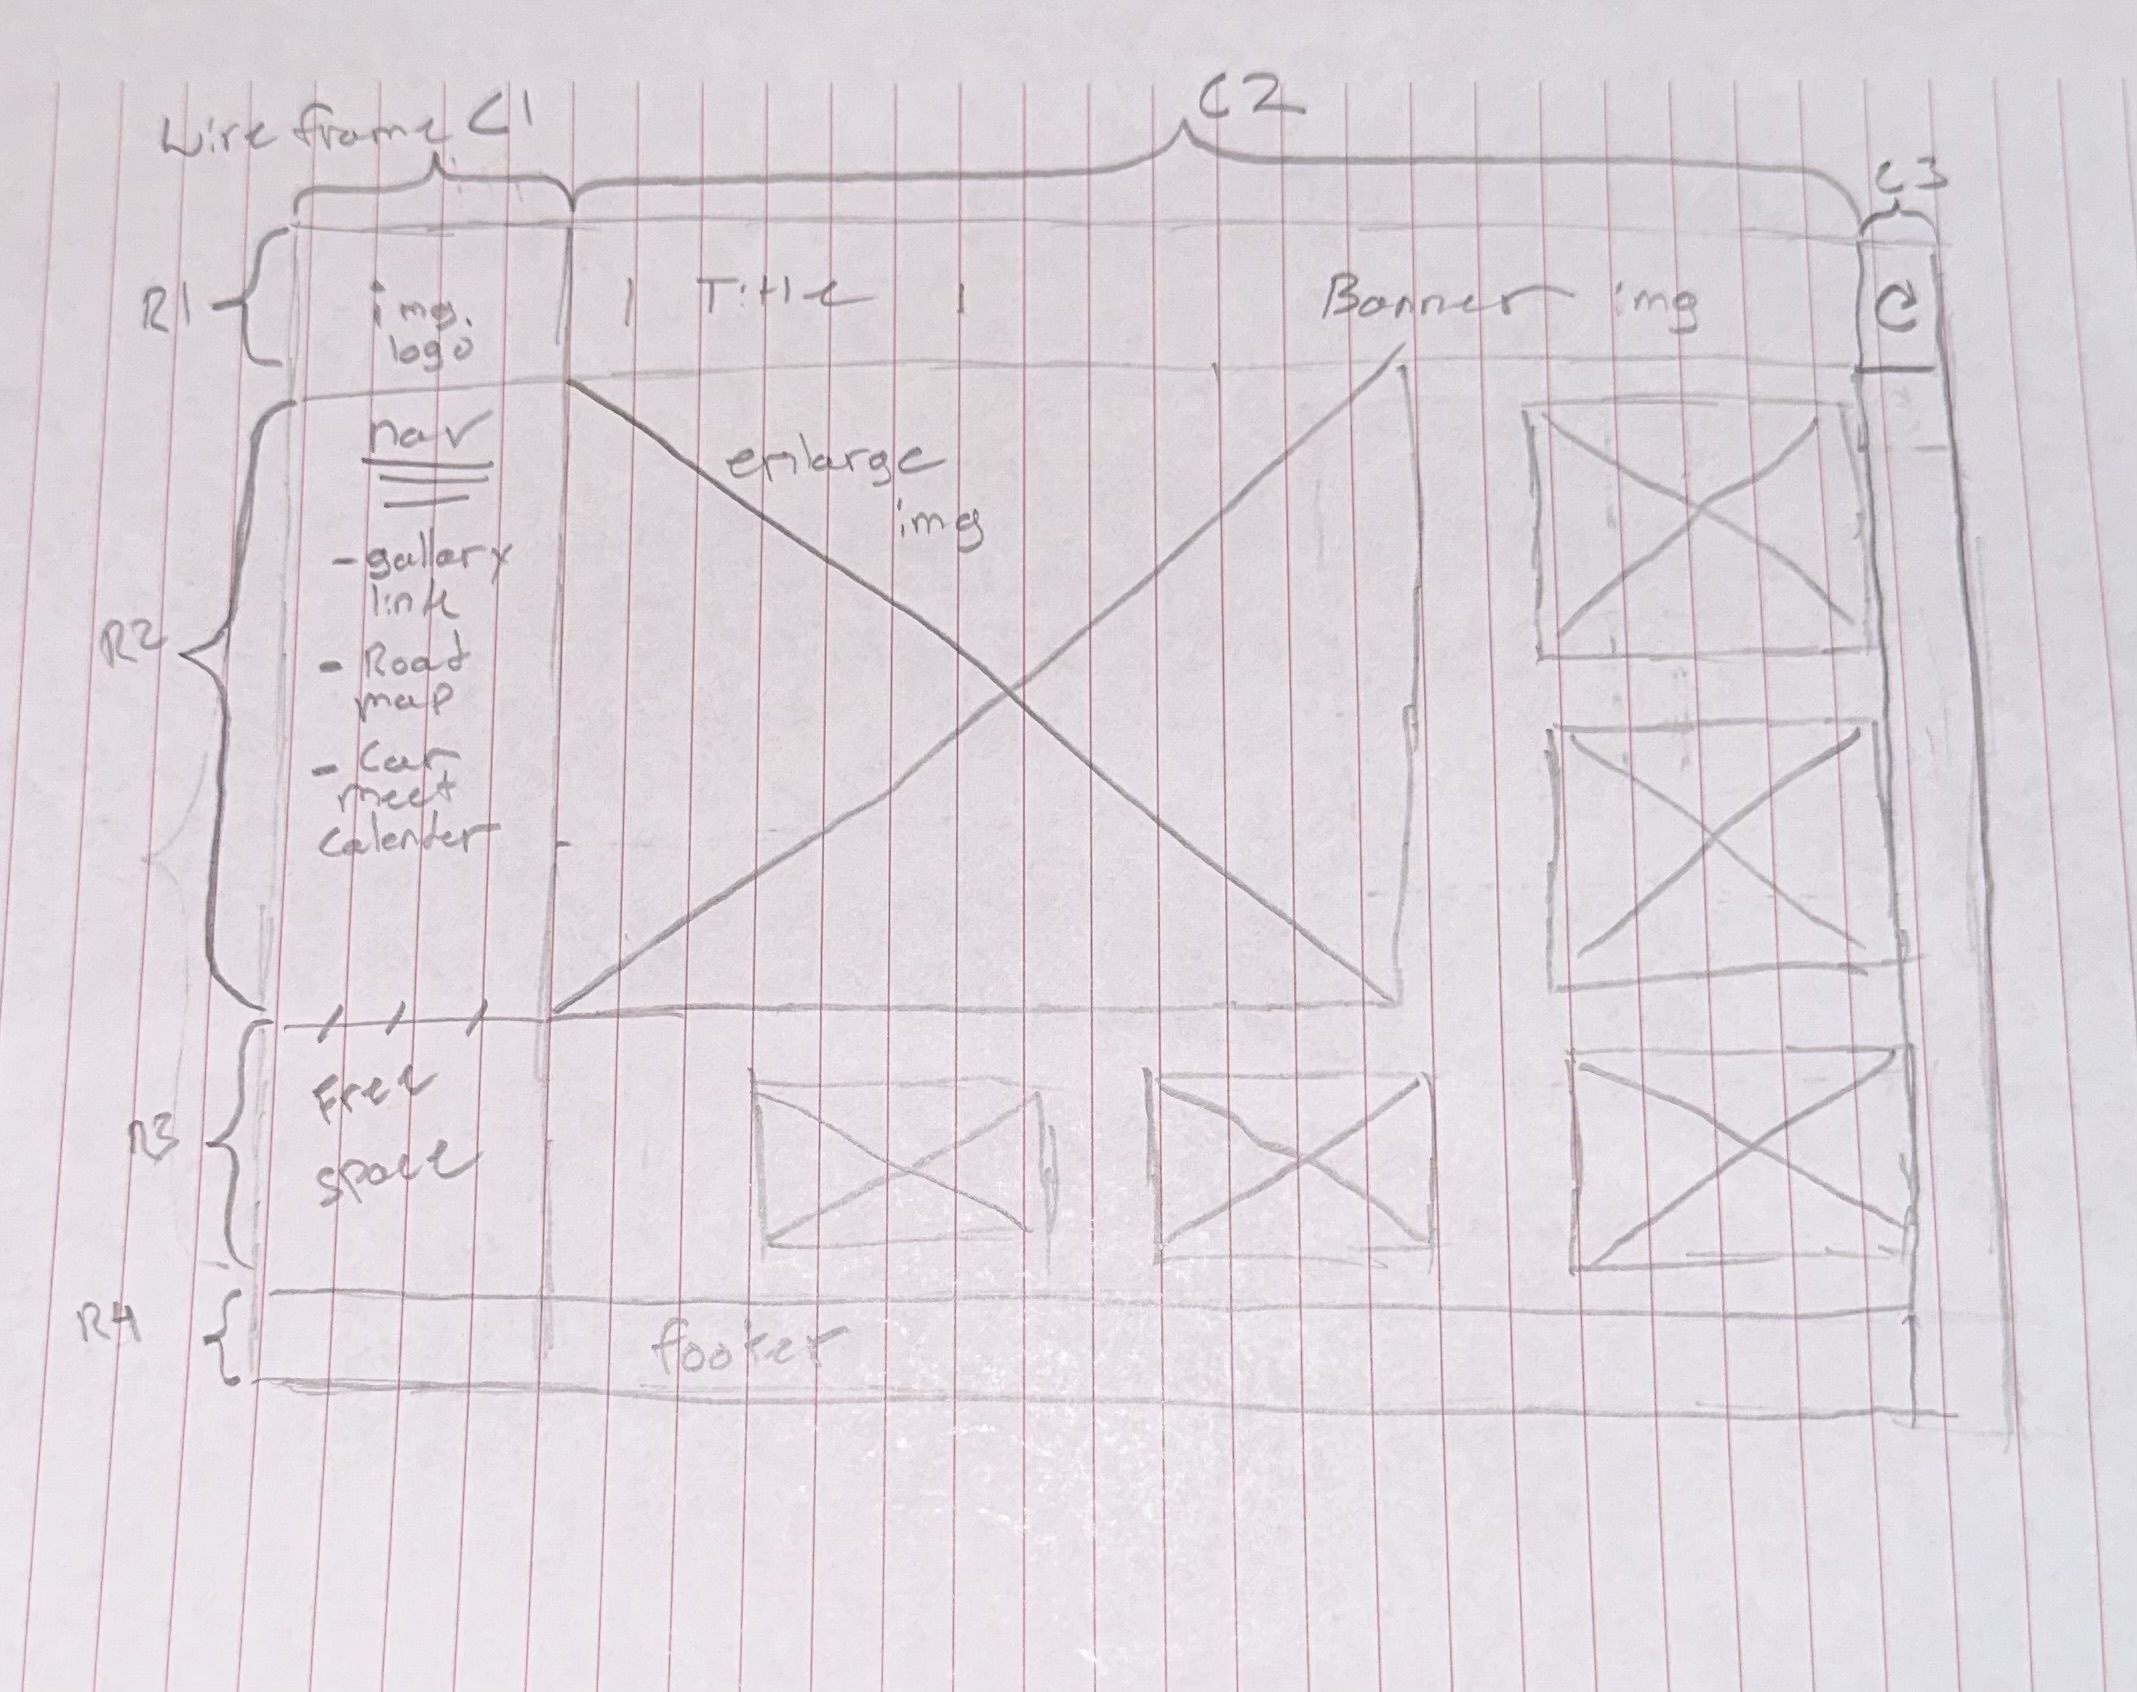 Wire frame C1
C2
C3
R1
img.
logo
| Title |
Banner img
C
R2
nav
enlarge
img
- gallary
link
- Road
map
- Car
meet
calender
R3
Free
space
R4
footer